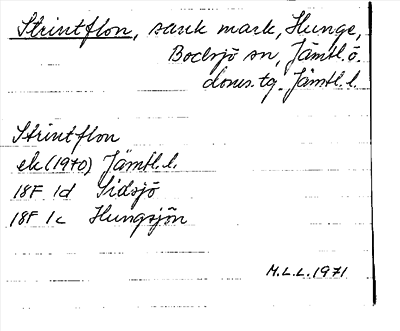 Strintflon, sank mark, Hunge,
Bodsjö sn, Jämtl. ö.
doms.tg. Jämtl. l.
Strintflon
ek (1970) Jämtl. l.
18F 1d Sidsjö
18F 1c Hungsjön
M.L.L. 1971